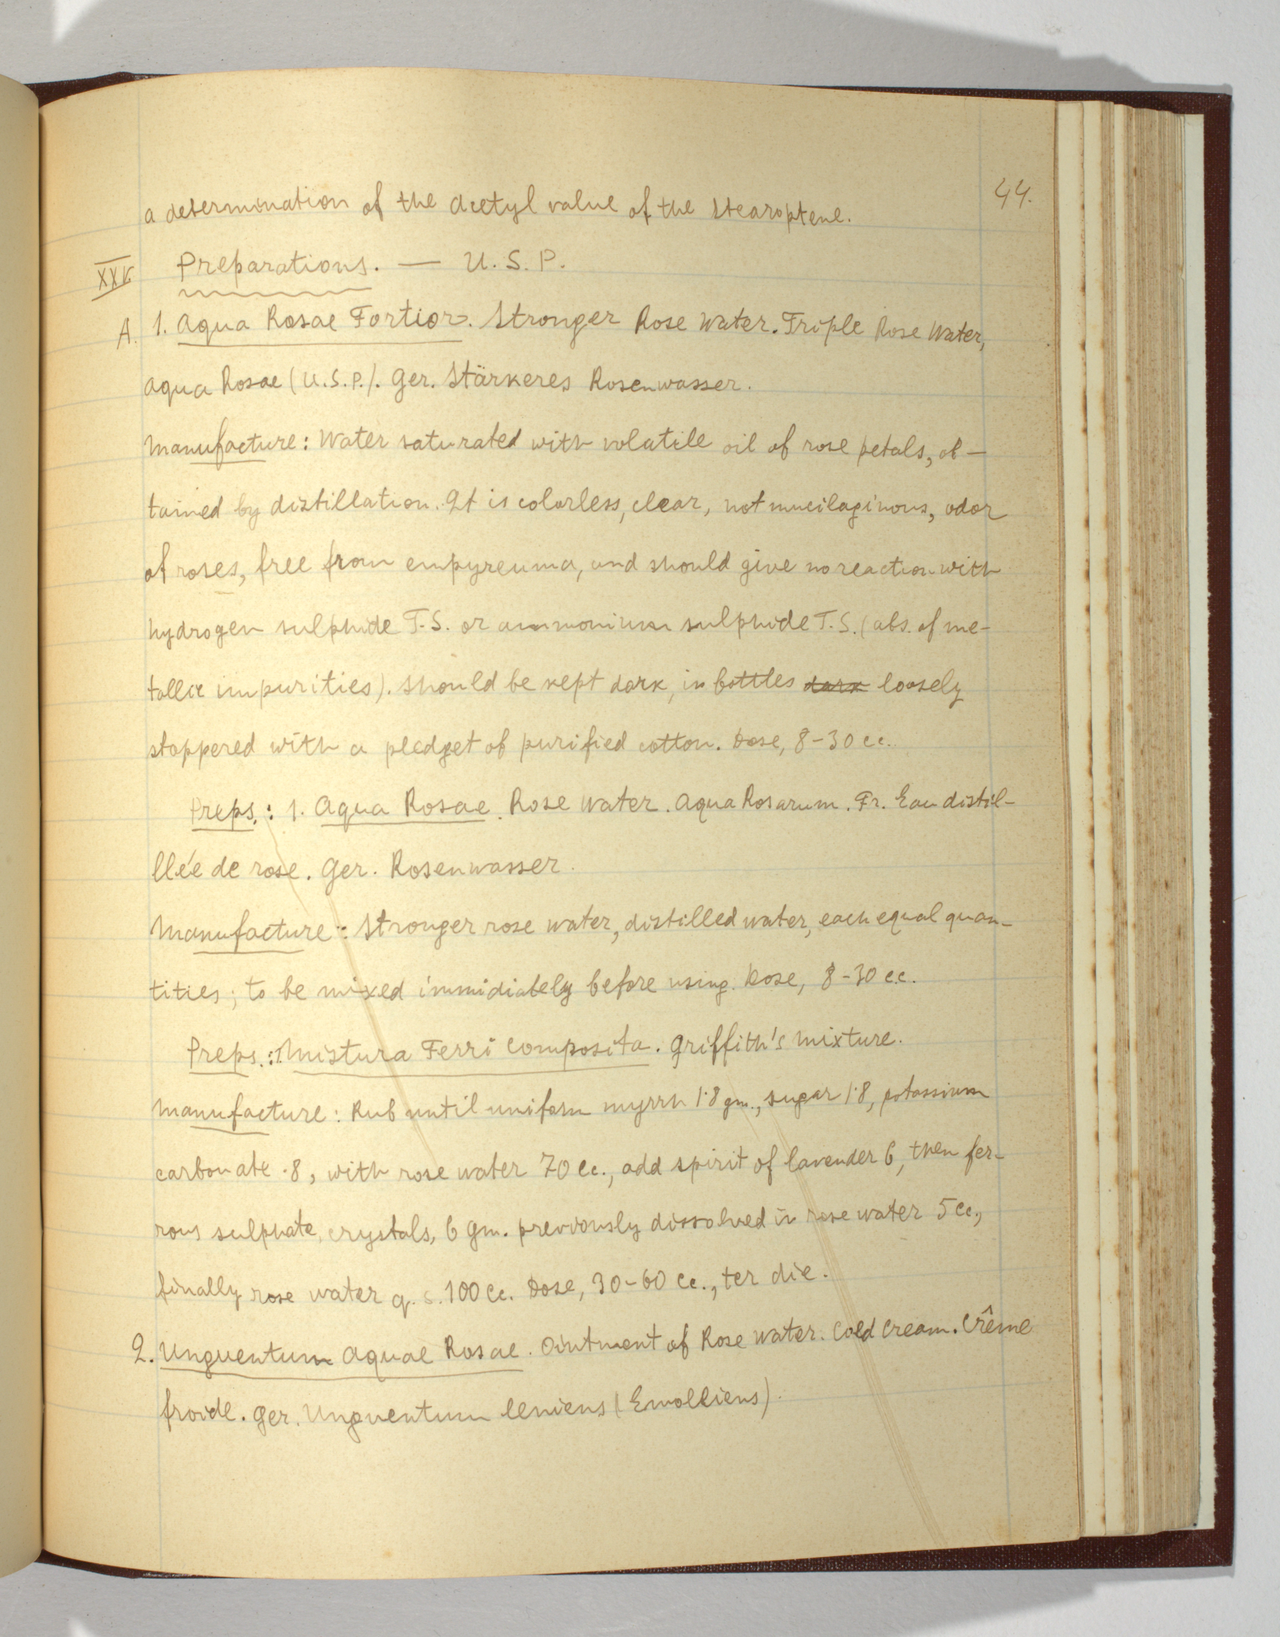 44.
a determination of the acetyl value of the stearoptene.
XXV. Preparations. — U.S.P.
A. 1. Aqua Rosae Fortior. Stronger Rose Water. Triple Rose Water,
Aqua Rosae (U.S.P.). Ger. Stärkeres Rosenwasser.
Manufacture: Water saturated with volatile oil of rose petals, ob-
tained by distillation. It is colorless, clear, not mucilaginous, odor
of roses, free from empyreuma, and should give no reaction with
hydrogen sulphide T.S. or ammonium sulphide T.S. (abs. of me-
tallic impurities). Should be kept dark, in bottles dark loosely
stoppered with a pledget of purified cotton. Dose, 8-30 cc.
Preps.: 1. Aqua Rosae. Rose Water. Aqua Rosarum. Fr. Eau distil-
llée de rose. Ger. Rosenwasser.
Manufacture: Stronger rose water, distilled water, each equal quan-
tities; to be mixed immidiately before using. Dose, 8-30 cc.
Preps.: 1. Mistura Ferri Composita. Griffith's mixture.
Manufacture: Rub until uniform myrrh 1·8 gm., sugar 1·8, potassium
carbonate ·8, with rose water 70 cc., add spirit of lavender 6, then fer-
rous sulphate, crystals, 6 gm. previously dissolved in rose water 5 cc.,
finally rose water q. s. 100 cc. Dose, 30-60 cc., ter die.
2. Unguentum Aquae Rosae. Ointment of Rose Water. Cold Cream. Crême
froide. Ger. Unguentum leniens (Emolliens).